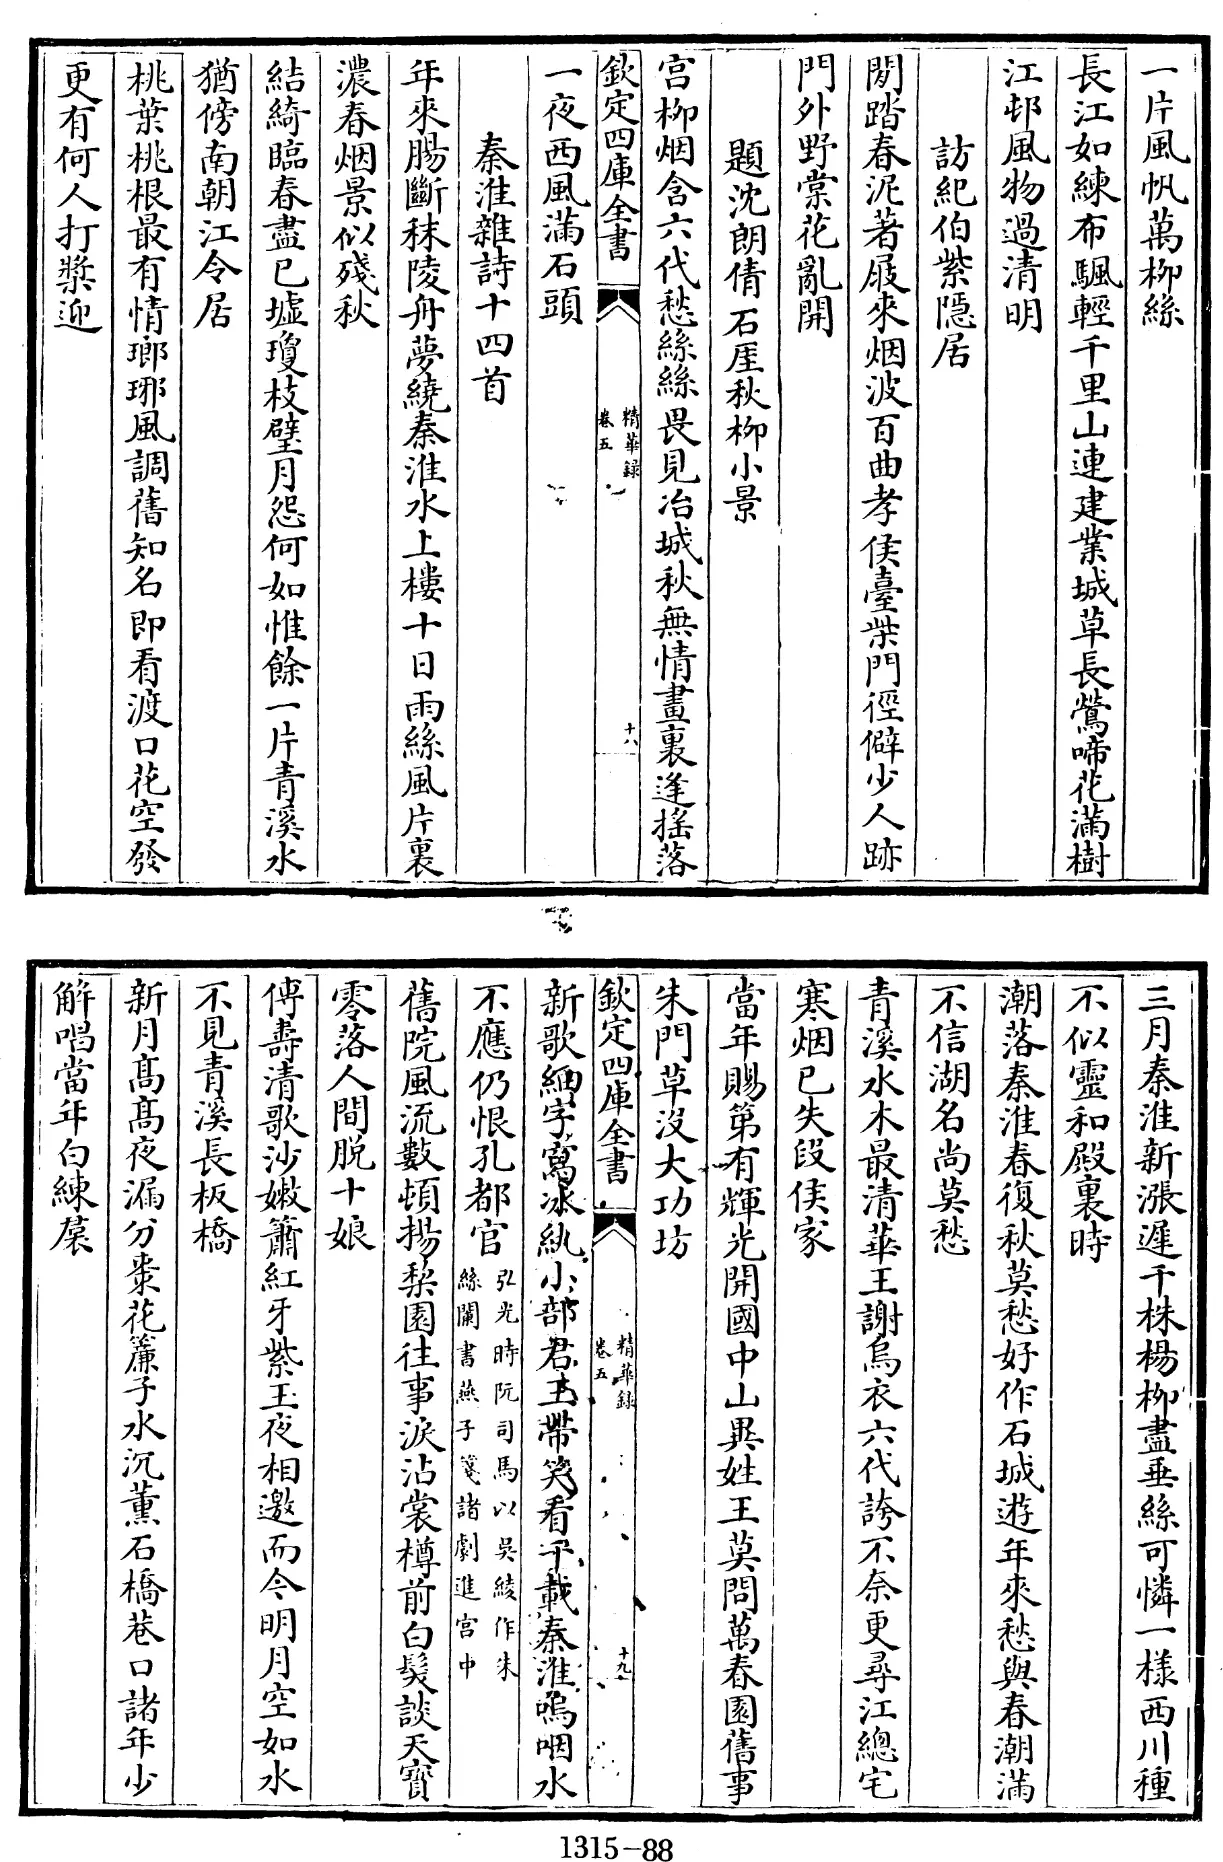 一片風帆萬柳絲
長江如練布颿輕千里山連建業城草長鶯啼花滿樹
江邨風物過清明
訪紀伯紫隱居
閒踏春泥著屐來烟波百曲孝侯臺柴門徑僻少人跡
門外野棠花亂開
題沈朗倩石厓秋柳小景
宫柳烟含六代愁絲絲畏見冶城秋無情畫裏逢搖落
欽定四庫全書
精華録
卷五
十八
一夜西風滿石頭
秦淮雜詩十四首
年來腸斷秣陵舟夢繞秦淮水上樓十日雨絲風片裏
濃春烟景似殘秋
結綺臨春盡已墟瓊枝璧月怨何如惟餘一片青溪水
猶傍南朝江令居
桃葉桃根最有情瑯琊風調舊知名即看渡口花空發
更有何人打槳迎
三月秦淮新漲遲千株楊柳盡垂絲可憐一樣西川種
不似靈和殿裏時
潮落秦淮春復秋莫愁好作石城遊年來愁與春潮滿
不信湖名尚莫愁
青溪水木最清華王謝烏衣六代誇不奈更尋江總宅
寒烟已失段侯家
當年賜第有輝光開國中山異姓王莫問萬春園舊事
朱門草没大功坊
欽定四庫全書
精華録
卷五
十九
新歌細字寫冰紈小部君王帶笑看千載秦淮嗚咽水
不應仍恨孔都官
弘光時阮司馬以吳綾作朱
絲闌書燕子箋諸劇進宫中
舊院風流數頓楊梨園往事淚沾裳樽前白髮談天寶
零落人間脱十娘
傅壽清歌沙嫩簫紅牙紫玉夜相邀而今明月空如水
不見青溪長板橋
新月高高夜漏分棗花簾子水沉薰石橋巷口諸年少
解唱當年白練裠
1315-88